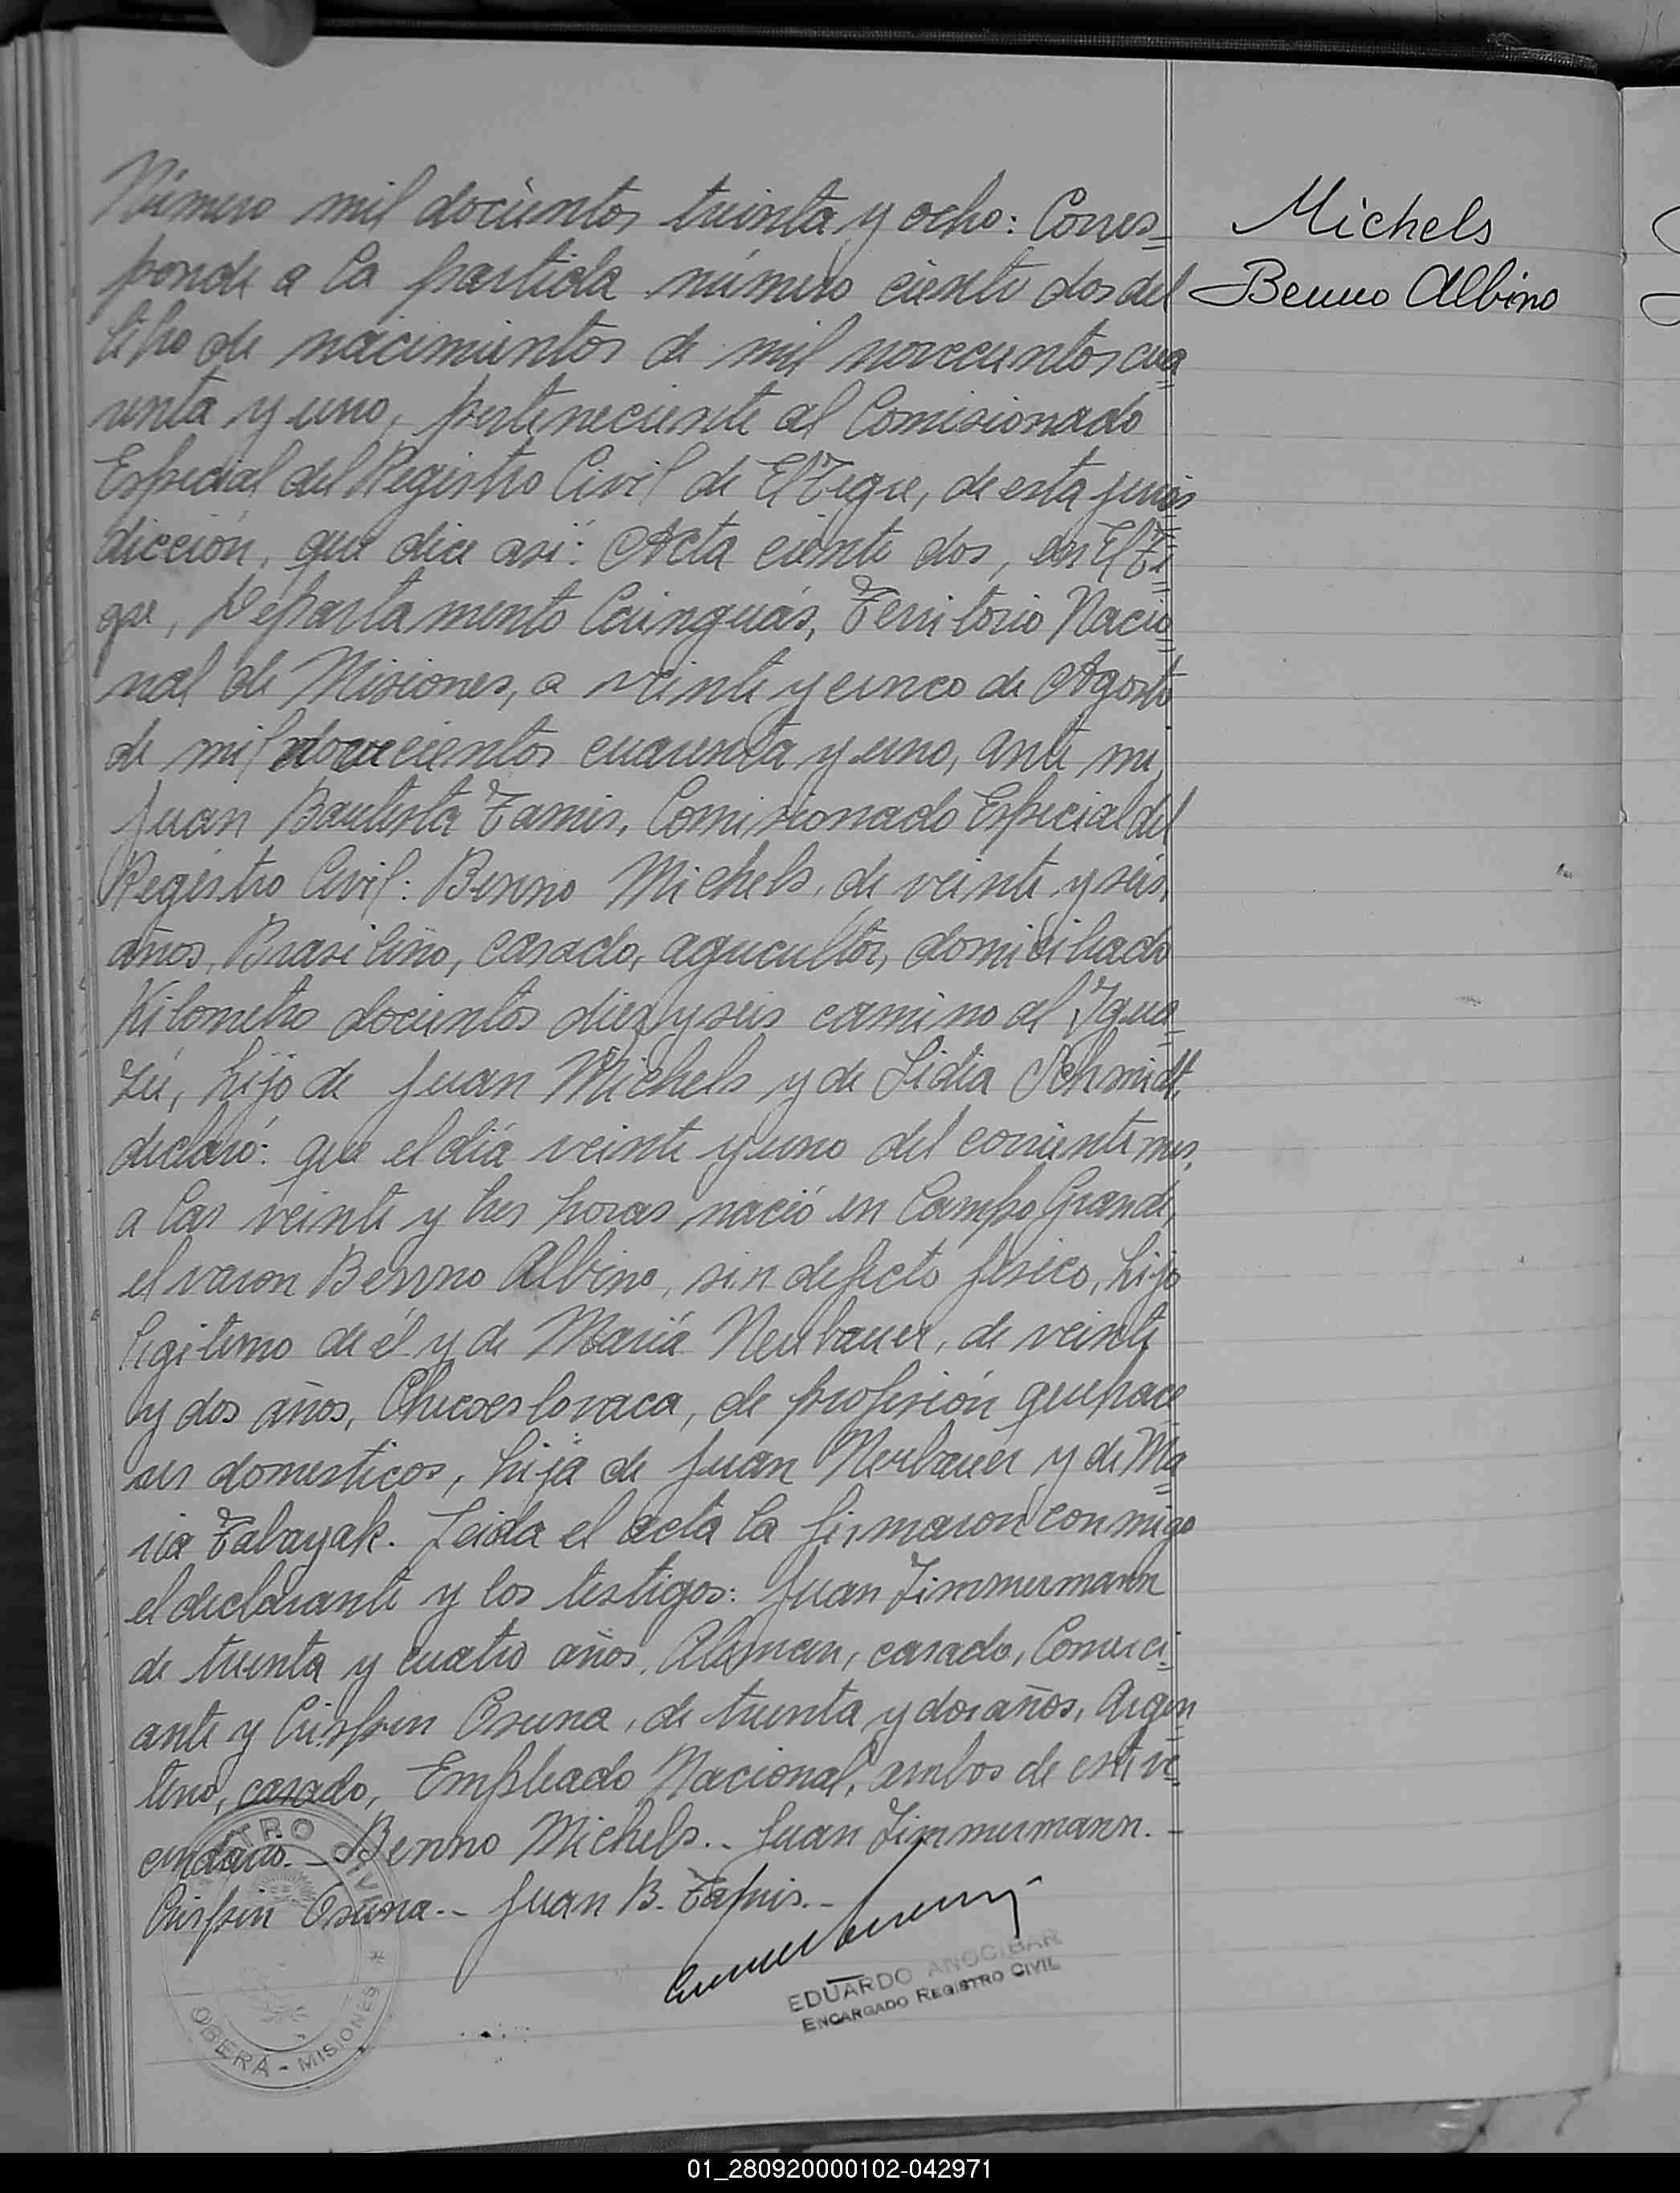 Número mil docientos treinta y ocho: Corres=
ponde a la partida número ciento dos del
libro de nacimientos de mil novecientos cua
renta y uno, perteneciente al Comisionado
Especial del Registro Civil de El Tigre, de esta juris
dicción, que dice asi: Acta ciento dos, en El Ti=
gre, Departamento Cainguás, Territorio Nacio
nal de Misiones, a veinte y cinco de Agosto
de mil novecientos cuarenta y uno, ante mi,
Juan Bautista, Comisionado Especial del
Registro Civil: Benno Michels, de veinte y seis,
años, Brasileño, casado, agricultor, domiciliado
Kilometro docientos diez y seis camino al Igua=
zú, hijo de Juan Michels y de Lidia Schmidt,
declaró: que el día veinte y uno del corriente mes,
a las veinte y tres horas nació en Campo Grande,
el varon Benno Albino, sin defecto fisico, hijo
legitimo de él y de María Neubauer, de veinte
y dos años, Checoeslovaca, de profesión quehace
res domesticos, hija de Juan Neubauer y de Ma=
ria Tabayak. Leida el acta la firmaron conmigo
el declarante y los testigos: Juan Zimmermann
de treinta y cuatro años, Aleman, casado, Comerci=
ante y Crispin Osuna, de treinta y dos años, Argen
tino, casado, Empleado Nacional, ambos de este ve=
cindario.- Benno Michels.- Juan Zimmermann.-
Crispin Osuna.- Juan B..-
Michels
Benno Albino
EDUARDO ANOCIBAR
ENCARGADO REGISTRO CIVIL
TRO CIVIL * OBERÁ - MISIONES *
01_280920000102-042971